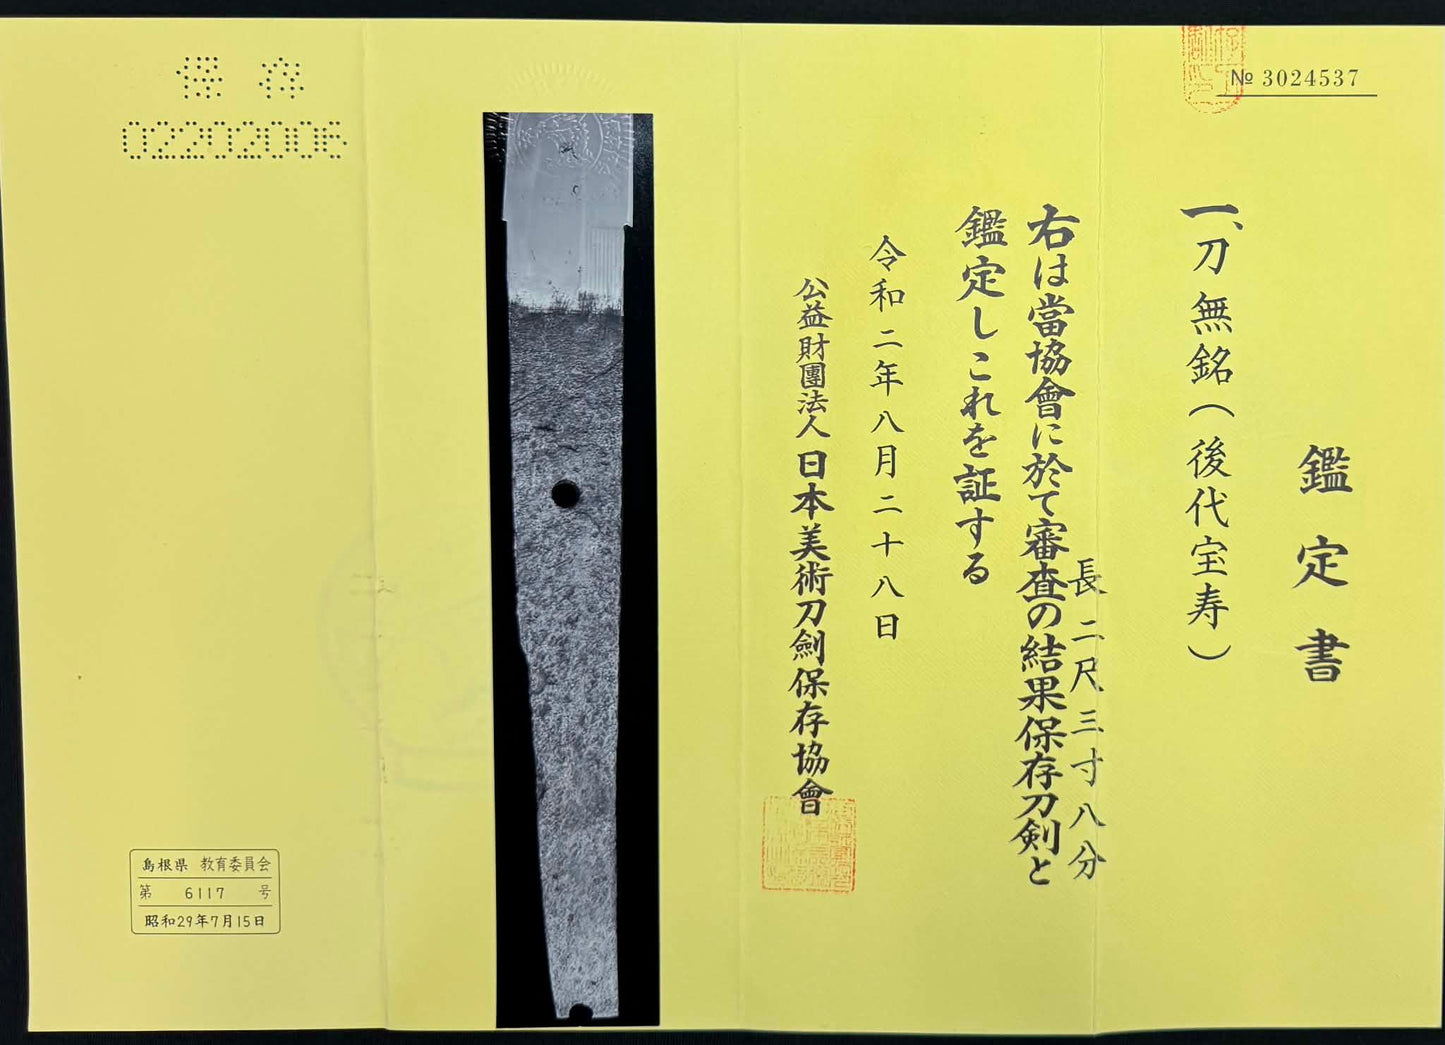 № 3024537
鑑定書
一、刀 無銘（後代宝寿）
長 二尺、三寸八分
右は當協會に於て審査の結果保存刀剣と
鑑定しこれを証する
令和二年八月二十八日
公益財團法人日本美術刀劍保存協會
保存
02202006
島根県 教育委員会
第 6117 号
昭和29年7月15日